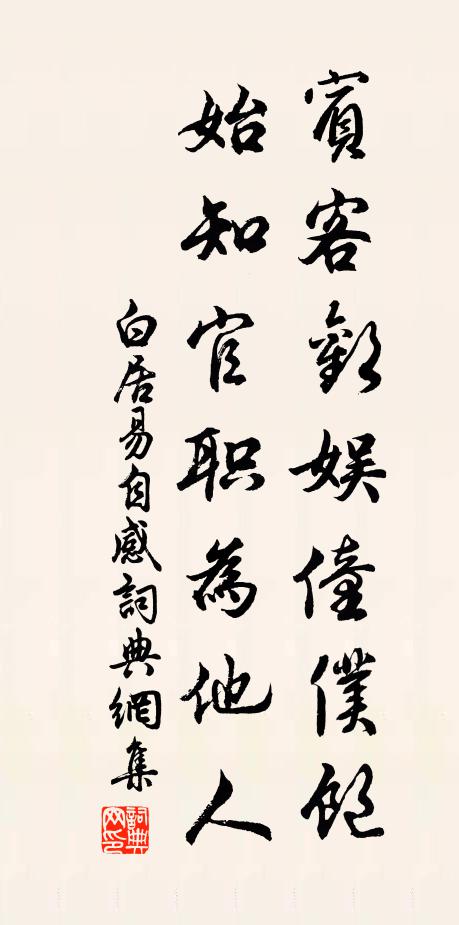 賓客歡娛僮僕飽
始知官职為他人
白居易自感詞典網集
詞典網印